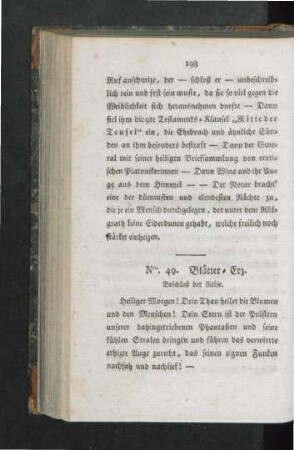 198
Ruf anschmize, der — schloß er — unbeschreib-
lich rein und fest sein muste, da sie so viel gegen die
Weiblichkeit sich herausnehmen durfte — Dann
fiel ihm die 9te Testaments-Klausel „Ritte der
Teufel“ ein, die Ehebruch und ähnliche Sün-
den an ihm besonders bestraft — Dann der Gene-
ral mit seiner heiligen Briefsammlung von eroti-
schen Platonikerinnen — Dann Wina und ihr Au-
ge aus dem Himmel — — Der Notar bracht'
eine der dümmsten und elendesten Nächte zu,
die je ein Mensch durchgelegen, der unter dem Rük-
grath keine Eiderdunen gehabt, welche freilich noch
stärker einheizen.
Nro. 49. Blätter-Erz.
Beschluß der Reise.
Heiliger Morgen! Dein Thau heilet die Blumen
und den Menschen! Dein Stern ist der Polstern
unserer dahingetriebenen Phantasien und seine
kühlen Stralen bringen und führen das verwirrte
erhizte Auge zurecht, das seinen eignen Funken
nachsah und nachlief! —